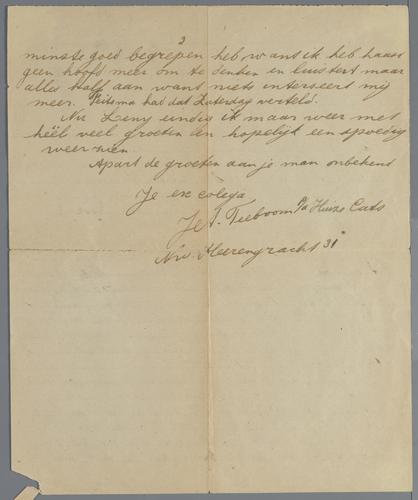 2
minste goed begrepen heb want ik heb haast
geen hoofd meer om te denken en luistert maar
alles half aan want niets interseert mij
meer. Peitsma had dat Zaterdag verteld.
Nu Leny eindig ik maar weer met
heel veel groeten en hopelijk een spoedig
weerzien
Apart de groeten aan je man onbekend
Je ex colega
Jet. Teeboom p/a Huize Cats
Nw. Heerengracht 31